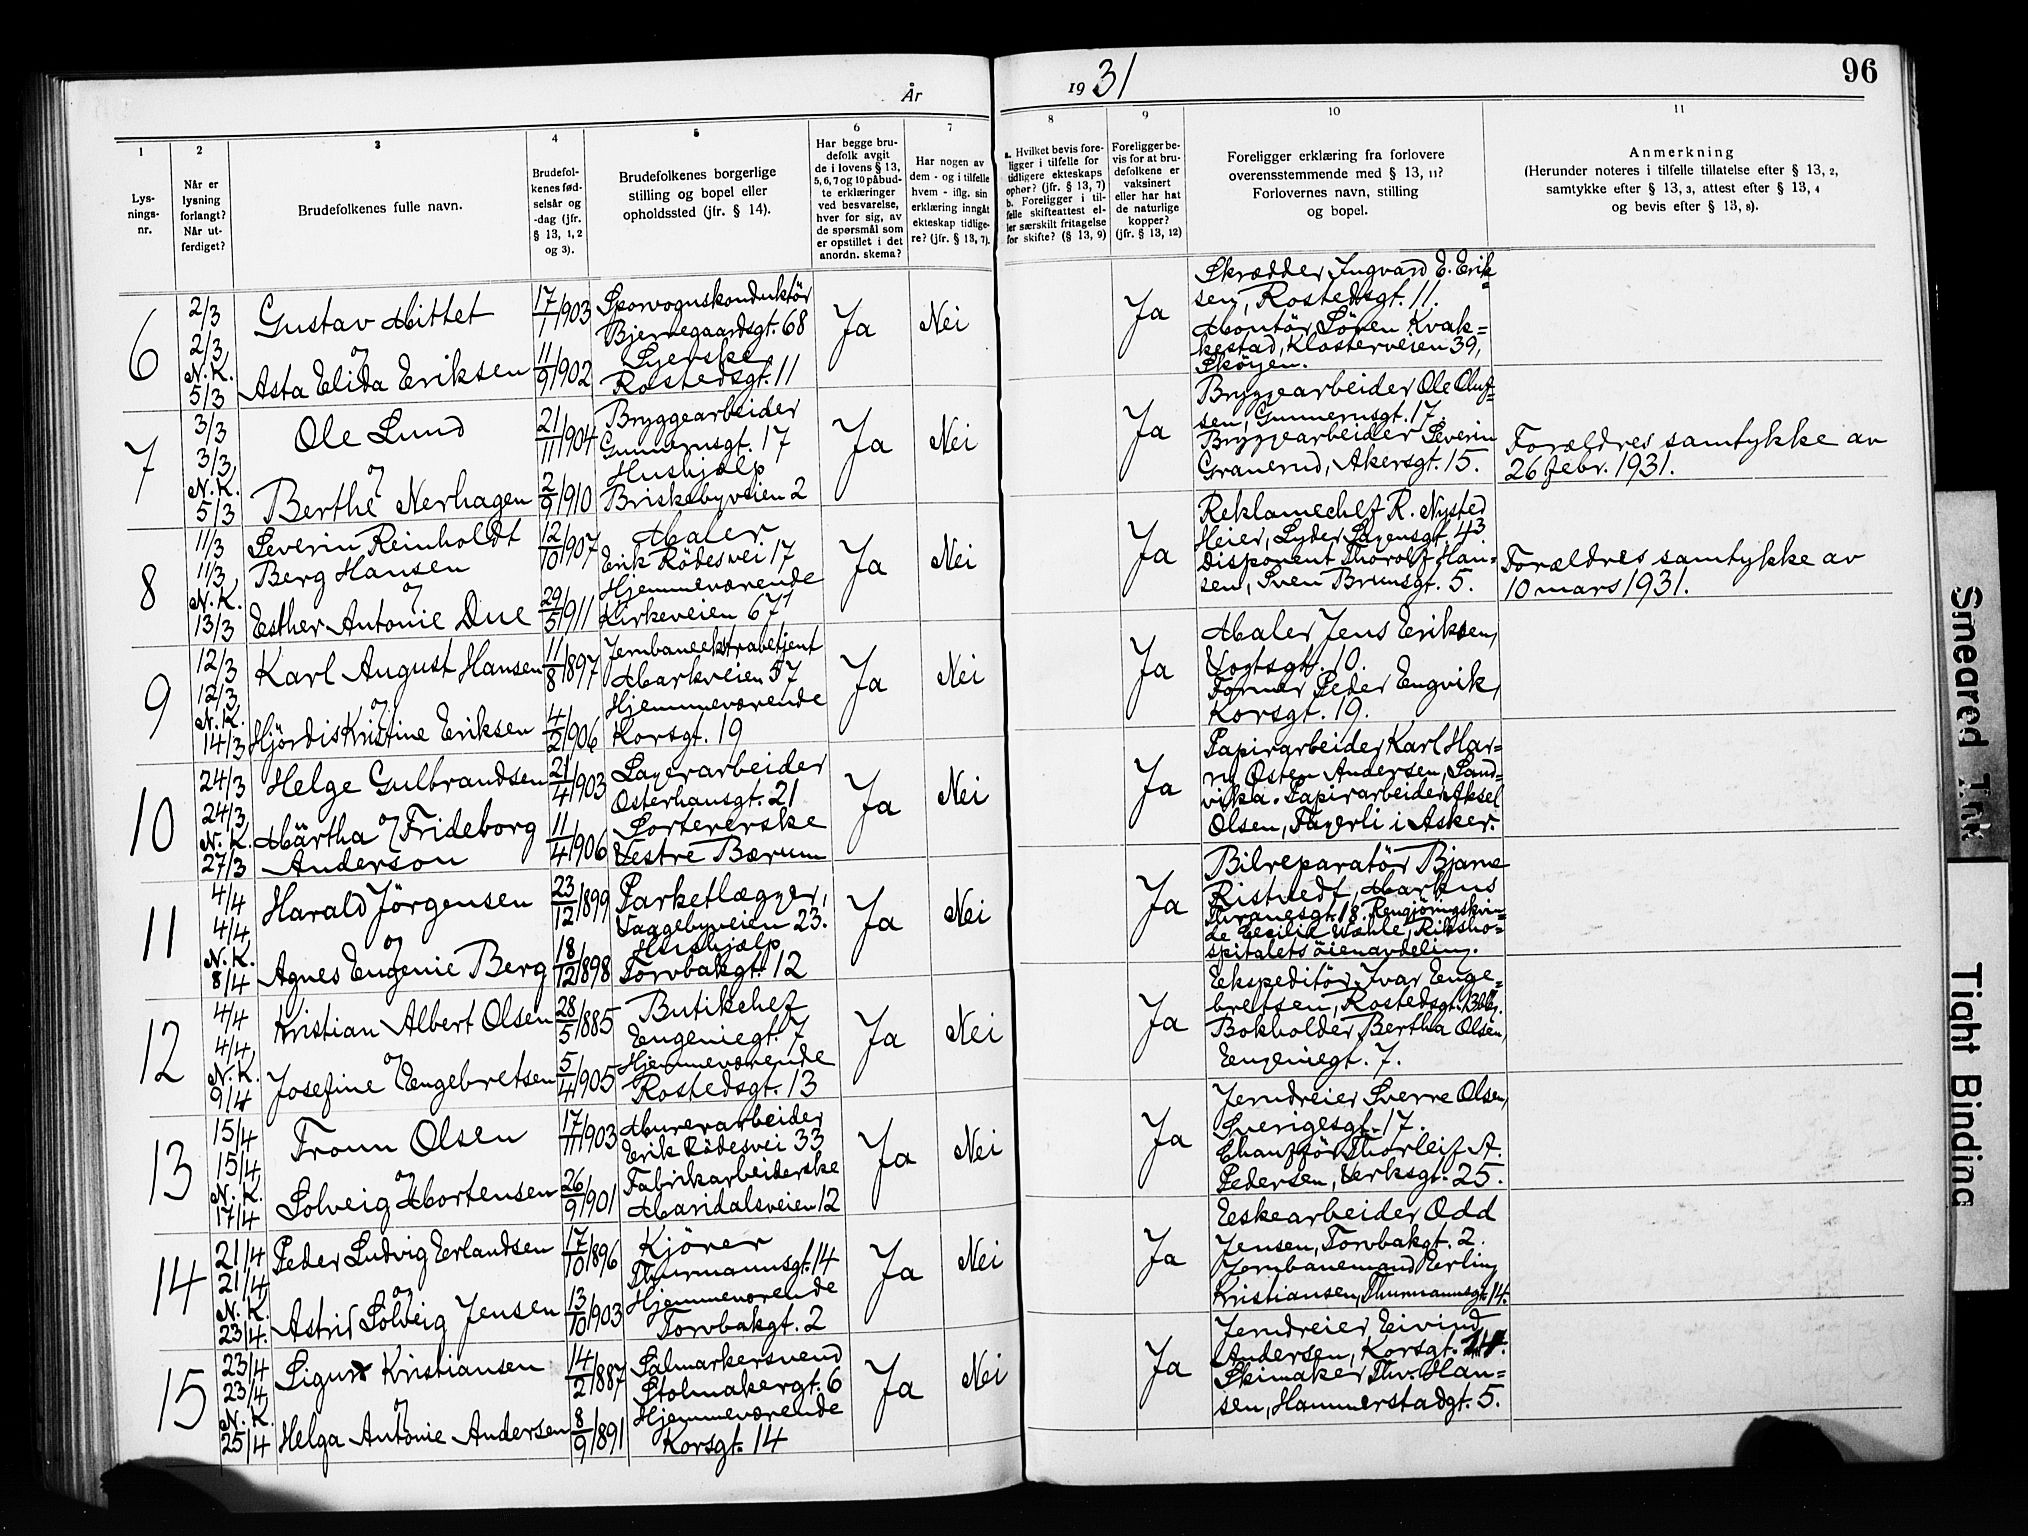 År
1931
96
1
2
3
4
5
6
7
8
9
10
11
Lys-
nings-
nr.
Når er
lysning
forlangt?
Når ut-
ferdiget?
Brudefolkenes fulle navn.
Brudefol-
kenes fød-
selsår og
-dag (jfr.
§ 13, 1, 2
og 3).
Brudefolkenes borgerlige
stilling og bopel eller
opholdssted (jfr. § 14).
Har begge bru-
defolk avgit
de i lovens § 13,
5, 6, 7 og 10 påbud-
te erklæringer
ved besvarelse,
hver for sig, av
de spørsmål som
er opstillet i det
anordn. skema?
Har nogen av
dem - og i tilfelle
hvem - iflg. sin
erklæring inngåt
ekteskap tidlige-
re? (jfr. § 13, 7).
a. Hvilket bevis fore-
ligger i tilfelle for
tidligere ekteskaps
ophør? (jfr. § 13, 7)
b. Foreligger i til-
felle skifteattest el-
ler særskilt fritagelse
for skifte? (§ 13, 9)
Foreligger be-
vis for at bru-
defolkene er
vaksinert
eller har hat
de naturlige
kopper?
(jfr. § 13, 12)
Foreligger erklæring fra forlovere
overensstemmende med § 13, 11?
Forlovernes navn, stilling
og bopel.
Anmerkning
(Herunder noteres i tilfelle tillatelse efter § 13, 2,
samtykke efter § 13, 3, attest efter § 13, 4
og bevis efter § 13, 8).
6
2/3
2/3
N.K.
5/3
Gustav Mittet
og
Asta Elida Eriksen
17/1 1903
11/9 1902
Sporvognskonduktör
Bjerregaardsgt. 68
Syerske
Rostedsgt. 11
Ja
Nei
Ja
Skrædder Ingvard E. Erik=
sen, Rostedsgt. 11.
Montör Sören Kvak=
kestad, Klosterveien 39,
Sköyen.
7
3/3
3/3
N.K.
5/3
Ole Lund
og
Berthe Nerhagen
21/11 1904
2/9 1910
Bryggearbeider
Gunnerusgt. 17
Hushjælp
Briskebyveien 2
Ja
Nei
Ja
Bryggearbeider Ole Oluf=
sen, Gunnerusgt. 17.
Bryggearbeider Severin
Granerud, Akersgt. 15.
Forældres samtykke av
26 febr. 1931.
8
11/3
11/3
N.K.
13/3
Severin Reinholdt
Berg Hansen
og
Esther Antonie Due
12/10 1907
29/5 1911
Maler
Erik Rödesvei 17
Hjemmeværende
Kirkeveien 67
Ja
Nei
Ja
Reklamechef R. Nysted
Heier, Lyder Sagensgt. 43
Disponent Thorolf Han=
sen, Sven Brunsgt. 5.
Forældres samtykke av
10 mars 1931.
9
12/3
12/3
N.K.
14/3
Karl August Hansen
og
Hjördis Kristine Eriksen
11/8 1897
4/2 1906
Jernbaneekstrabetjent
Markveien 57
Hjemmeværende
Korsgt. 19
Ja
Nei
Ja
Maler Jens Eriksen,
Vogtsgt. 10.
Former Peder Engvik,
Korsgt. 19.
10
24/3
24/3
N.K.
27/3
Helge Gulbrandsen
og
Märtha Frideborg
Anderson
21/4 1903
11/4 1906
Lagerarbeider
Osterhausgt. 21
Sortererske
Vestre Bærum
Ja
Nei
Ja
Papirarbeider Karl Har=
ry Osten Andersen, Sand=
vika. Papirarbeider Aksel
Olsen, Fagerli i Asker.
11
4/4
4/4
N.K.
8/4
Harald Jörgensen
og
Agnes Eugenie Berg
23/12 1899
18/12 1898
Parketlægger,
Vaggebyveien 23.
Hushjælp
Torvbakgt. 12
Ja
Nei
Ja
Bilreparatör Bjarne
Ristvedt, Markus
Thranesgt. 18. Rengjöringskvin=
de Cecilie Wahle, Riksho=
spitalets öienavdeling.
12
4/4
4/4
N.K.
9/4
Kristian Albert Olsen
og
Josefine Engebretsen
28/5 1885
5/4 1905
Butikchef
Eugeniegt. 7
Hjemmeværende
Rostedsgt. 13
Ja
Nei
Ja
Ekspeditör Ivar Enge=
bretsen, Rostedsgt. 13
Bokholder Bertha Olsen,
Eugeniegt. 7.
13
15/4
15/4
N.K.
17/4
Fronn Olsen
og
Solveig Mortensen
17/11 1903
26/9 1901
Murerarbeider
Erik Rödesvei 33
Fabrikarbeiderske
Maridalsveien 12
Ja
Nei
Ja
Jerndreier Sverre Olsen,
Sverigesgt. 17.
Chaufför Thorleif A.
Pedersen, Verksgt. 25.
14
21/4
21/4
N.K.
23/4.
Peder Ludvig Erlandsen
og
Astrid Solveig Jensen
17/10 1896
13/10 1903
Kjörer
Thurmannsgt. 14
Hjemmeværende
Torvbakgt. 2
Ja
Nei
Ja
Eskearbeider Odd
Jensen, Torvbakgt. 2.
Jernbanemand Erling
Kristiansen, Thurmannsgt. 14.
15
23/4
23/4
N.K.
25/4
Sigurd Kristiansen
og
Helga Antonie Andersen
14/2 1887
8/9 1891
Salmakersvend
Stolmakergt. 6
Hjemmeværende
Korsgt. 14
Ja
Nei
Ja
Jerndreier Eivind
Andersen, Korsgt. 14.
Skimaker Thv. Han=
sen, Hammerstadgt. 5.
Smeared Ink
Tight Binding